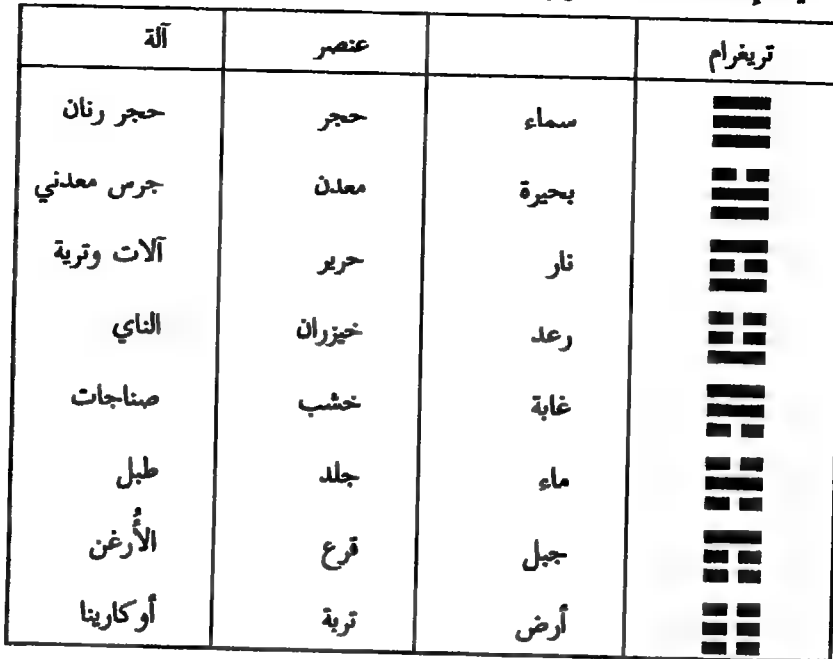 تريغرام عنصر آلة
سماء حجر حجر رنان
بحيرة معدن جرس معدني
نار حرير آلات وترية
رعد خيزران الناي
غابة خشب صناجات
ماء جلد طبل
جبل قرع الأُرغن
أرض تربة أوكارينا